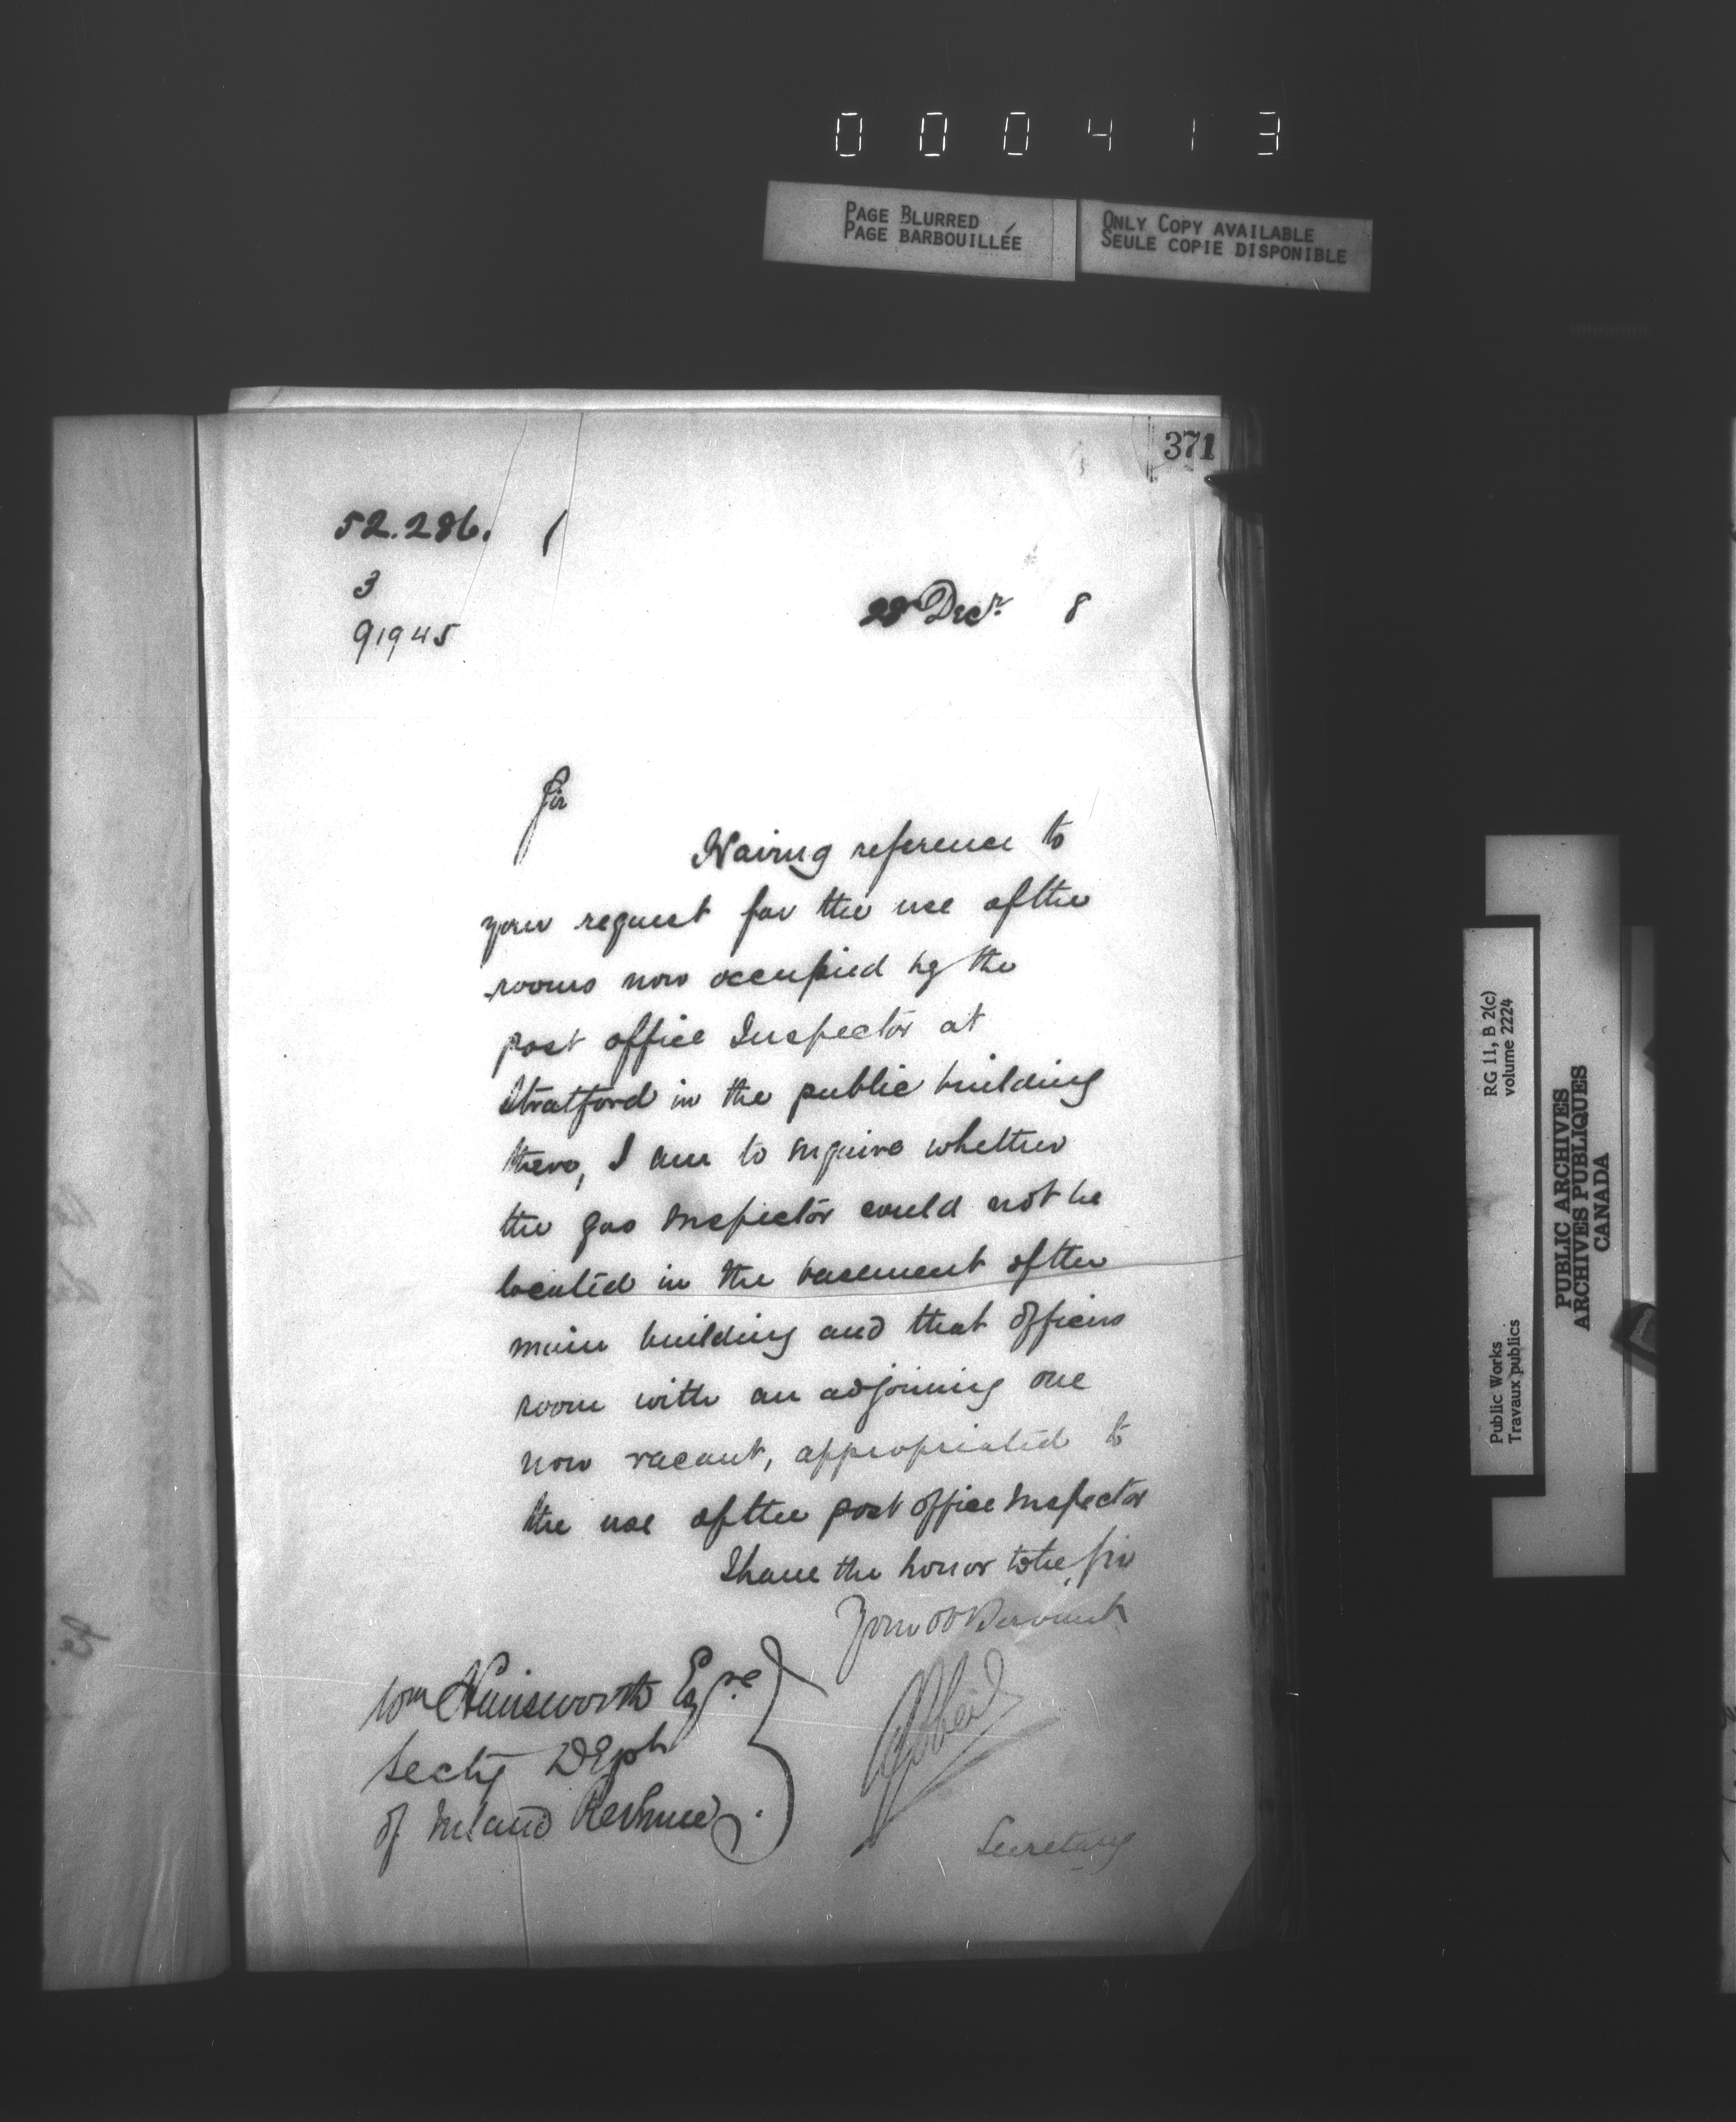 000413
PAGE BLURRED
PAGE BARBOUILLÉE
ONLY COPY AVAILABLE
SEULE COPIE DISPONIBLE
371
52.286. 1
3
91945
28 Decr. 8
Sir
Having reference to
your request for the use of the
rooms now occupied by the
post office Inspector at
Stratford in the public building
there, I am to inquire whether
the gas Inspector could not be
located in the basement of the
main building and that officers
room with an adjoining one
now vacant, appropriated to
the use of the post office Inspector
I have the honor to be, Sir
Your ob Servant
Wm Himsworth Esqre
Secty Dept
of Inland Revenue.
Secretary
RG 11, B 2(c)
volume 2224
Public Works
Travaux publics
PUBLIC ARCHIVES
ARCHIVES PUBLIQUES
CANADA